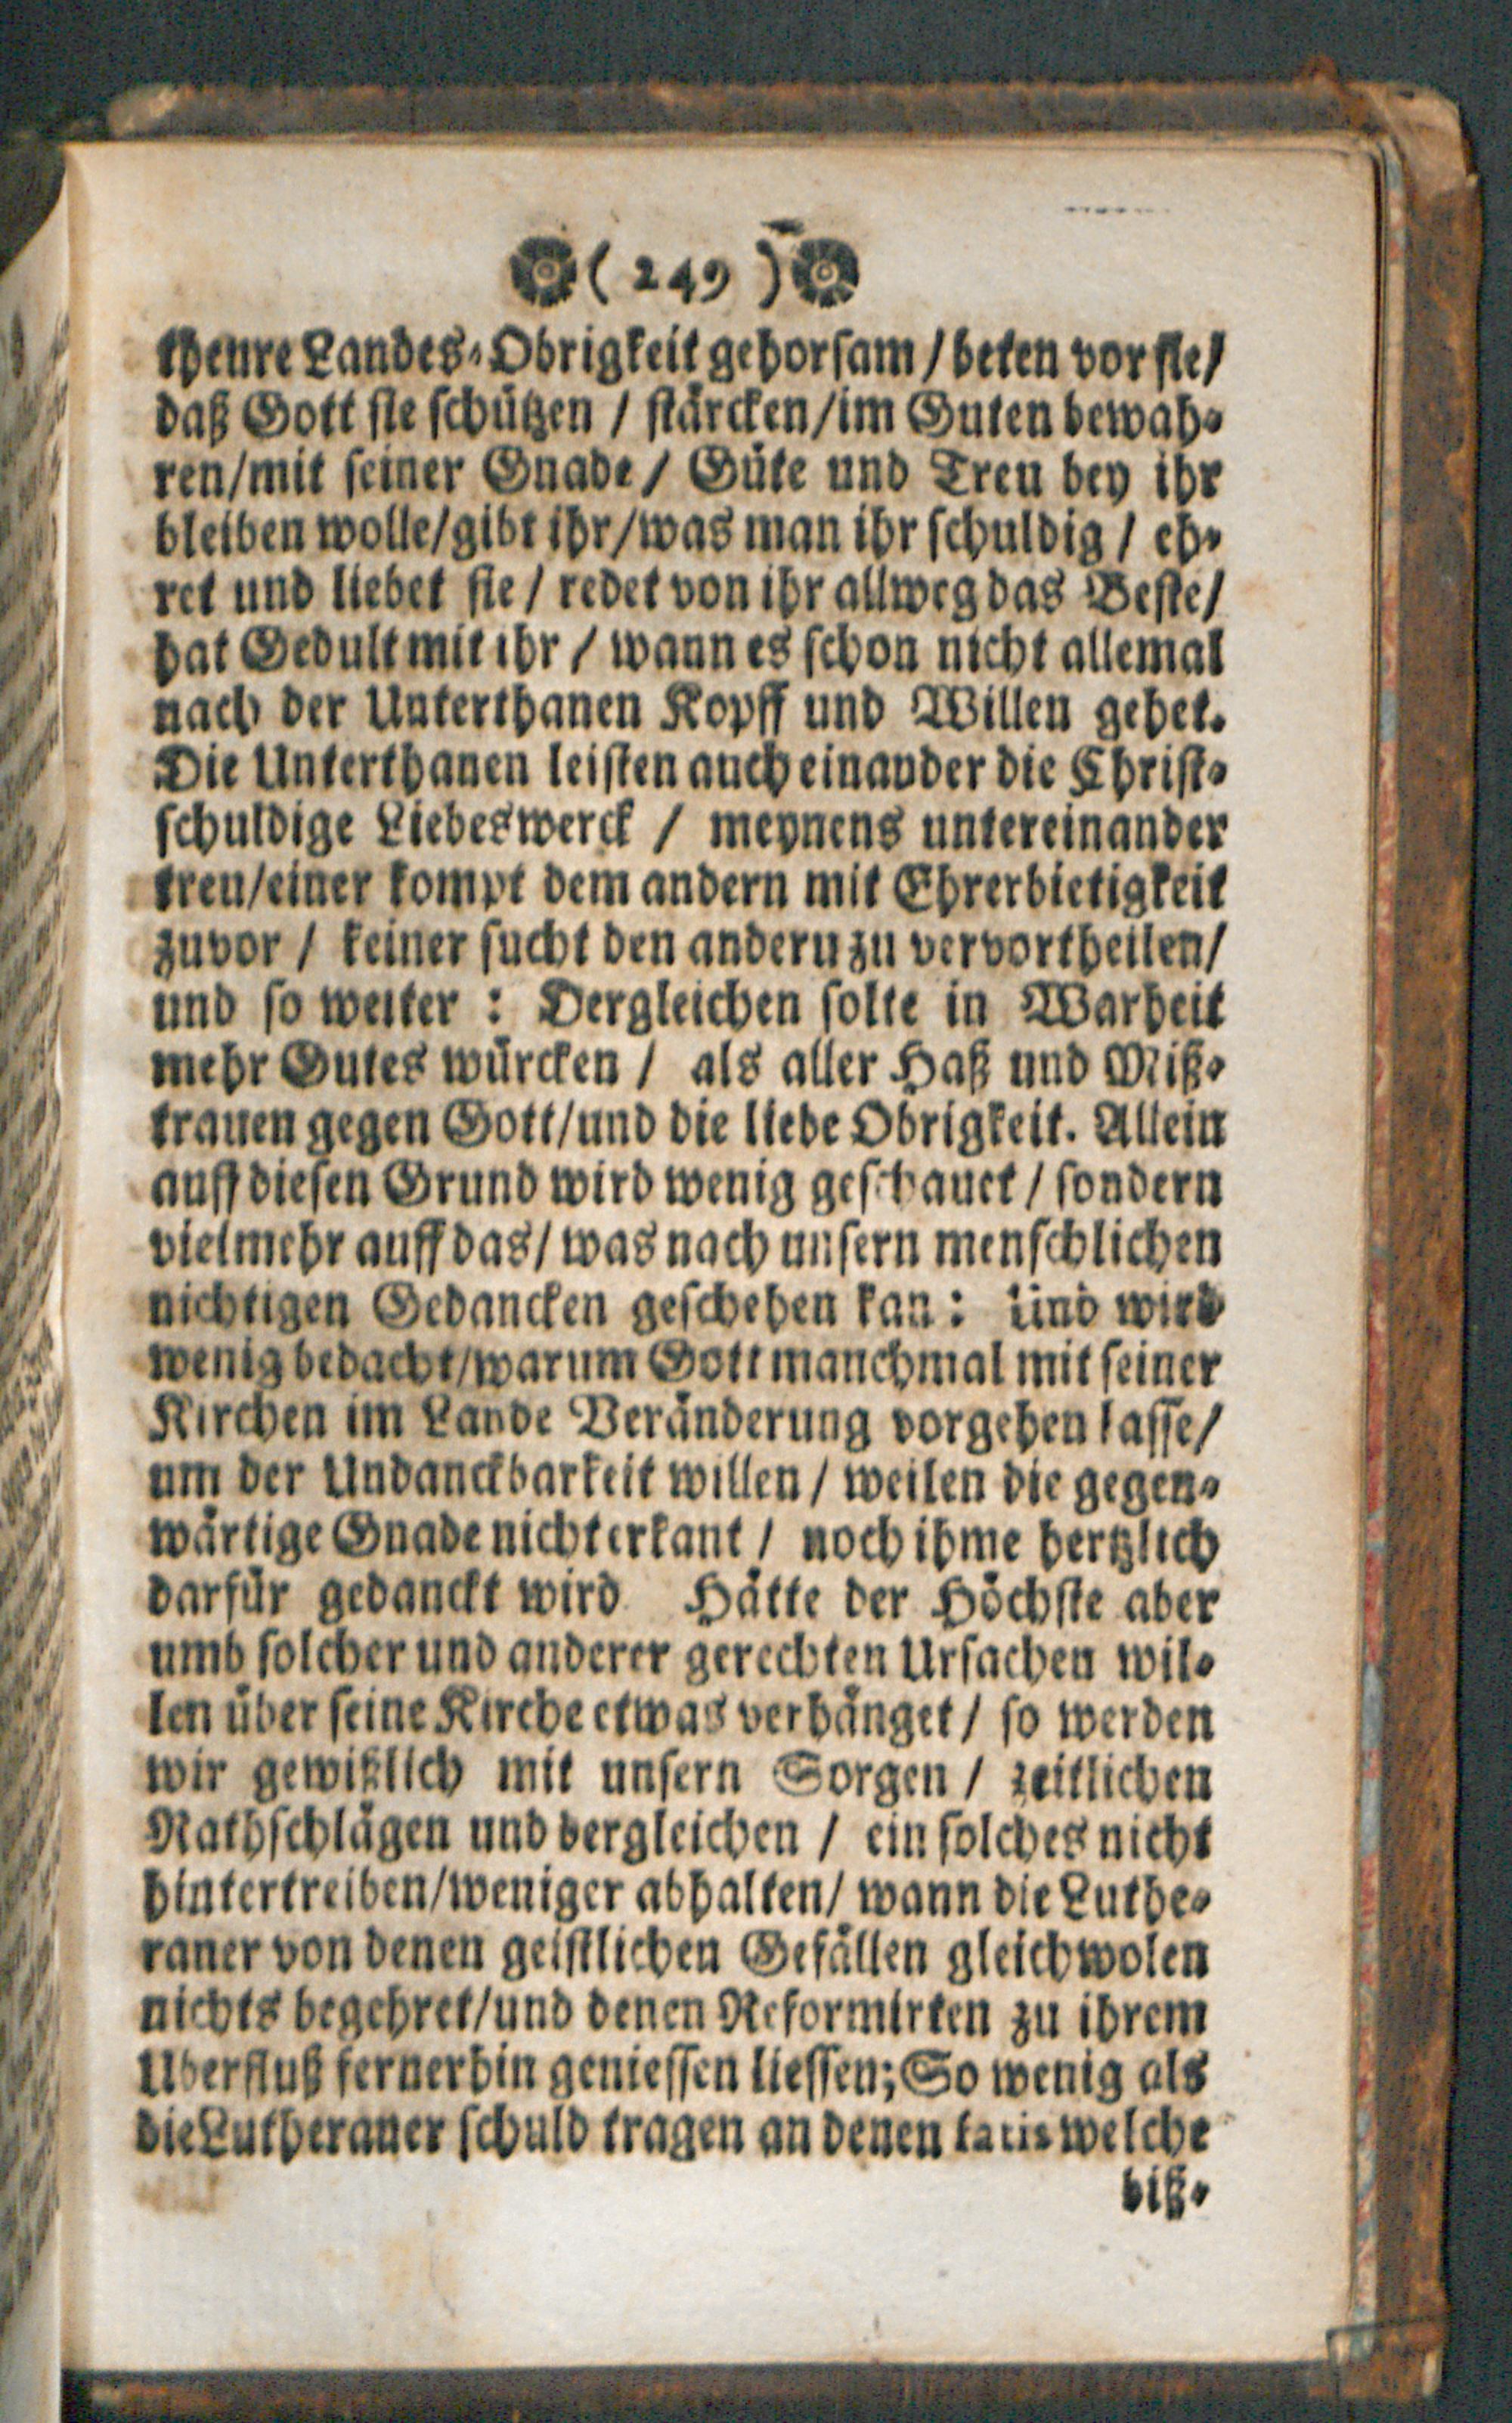 ( 249 )
theure Landes-Obrigkeit gehorsam / beten vor sie /
daß Gott sie schützen / stärcken / im Guten bewah-
ren / mit seiner Gnade / Güte und Treu bey ihr
bleiben wolle / gibt ihr / was man ihr schuldig / eh-
ret und liebet sie / redet von ihr allweg das Beste /
hat Gedult mit ihr / wann es schon nicht allemal
nach der Unterthanen Kopff und Willen gehet.
Die Unterthanen leisten auch einander die Christ-
schuldige Liebeswerck / meynens untereinander
treu / einer kompt dem andern mit Ehrerbietigkeit
zuvor / keiner sucht den andern zu vervortheilen /
und so weiter : Dergleichen solte in Warheit
mehr Gutes würcken / als aller Haß und Miß-
trauen gegen Gott / und die liebe Obrigkeit. Allein
auff diesen Grund wird wenig geschauet / sondern
vielmehr auff das / was nach unsern menschlichen
nichtigen Gedancken geschehen kan : Und wird
wenig bedacht / warum Gott manchmal mit seiner
Kirchen im Lande Veränderung vorgehen lasse /
um der Undanckbarkeit willen / weilen die gegen-
wärtige Gnade nicht erkant / noch ihme hertzlich
darfür gedanckt wird Hätte der Höchste aber
umb solcher und anderer gerechten Ursachen wil-
len über seine Kirche etwas verhänget / so werden
wir gewißlich mit unsern Sorgen / zeitlichen
Rathschlägen und dergleichen / ein solches nicht
hintertreiben / weniger abhalten / wann die Luthe-
raner von denen geistlichen Gefällen gleichwolen
nichts begehret / und denen Reformirten zu ihrem
Uberfluß fernerhin geniessen liessen; So wenig als
die Lutheraner schuld tragen an denen fatis welche
biß-